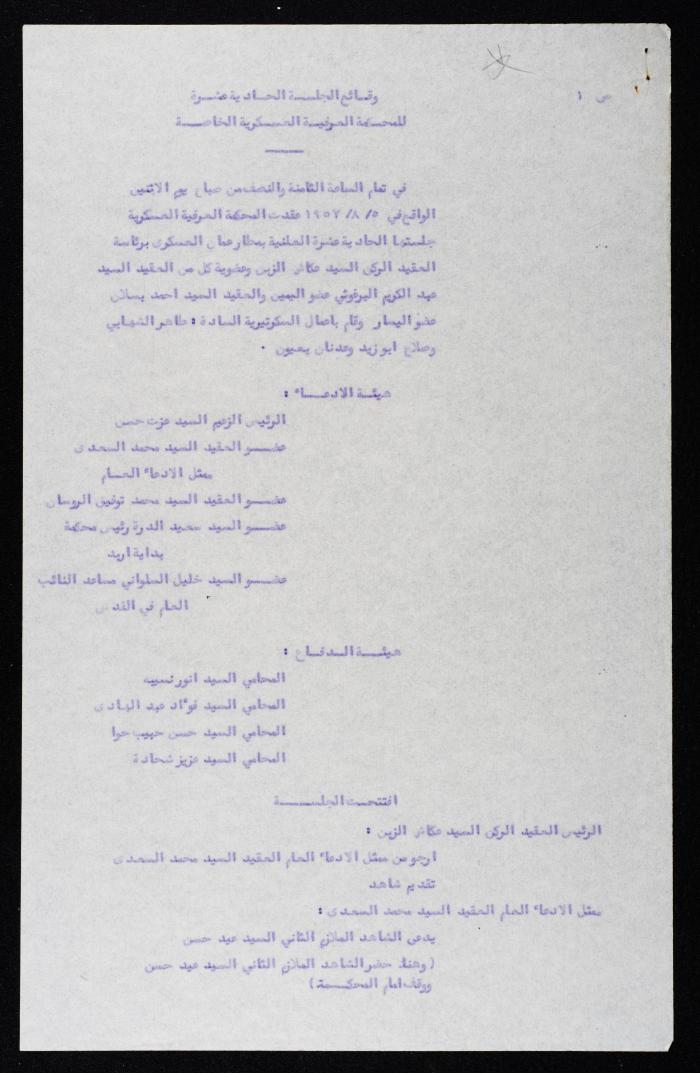 ص ١
وقائع الجلسة الحادية عشرة
للمحكمة العرفية العسكرية الخاصة
في تمام الساعة الثامنة والنصف من صباح يوم الاثنين
الواقع في ٥/ ٨/ ١٩٥٧ عقدت المحكمة العرفية العسكرية
جلستها الحادية عشرة العلنية بمطار عمان العسكرى برئاسة
العقيد الركن السيد عكاش الزبن وعضوية كل من العقيد السيد
عبد الكريم البرغوثي عضو اليمين والعقيد السيد احمد
عضو اليسار وقام باعمال السكرتيرية السادة : طاهر الشهابي
وصلاح ابو زيد وعدنان بعيون ٠
هيئة الادعاء :
الرئيس الزعيم السيد عزت حسن
عضو العقيد السيد محمد السعدى
ممثل الادعاء العام
عضو العقيد السيد محمد توفيق الروسان
عضو السيد سعيد الدرة رئيس محكمة
بداية اربد
عضو السيد خليل السلواني مساعد النائب
العام في القدس
هيئة الدفاع :
المحامي السيد انور نسيبه
المحامي السيد فوءاد عبد الهادى
المحامي السيد حسن حبيب حوا
المحامي السيد عزيز شحادة
افتتحت الجلسة
الرئيس العقيد الركن السيد عكاش الزبن :
ارجو من ممثل الادعاء العام العقيد السيد محمد السعدى
تقديم شاهد
ممثل الادعاء العام العقيد السيد محمد السعدى :
يدعى الشاهد الملازم الثاني السيد عيد حسن
( وهنا حضر الشاهد الملازم الثاني السيد عيد حسن
ووقف امام المحكمة )